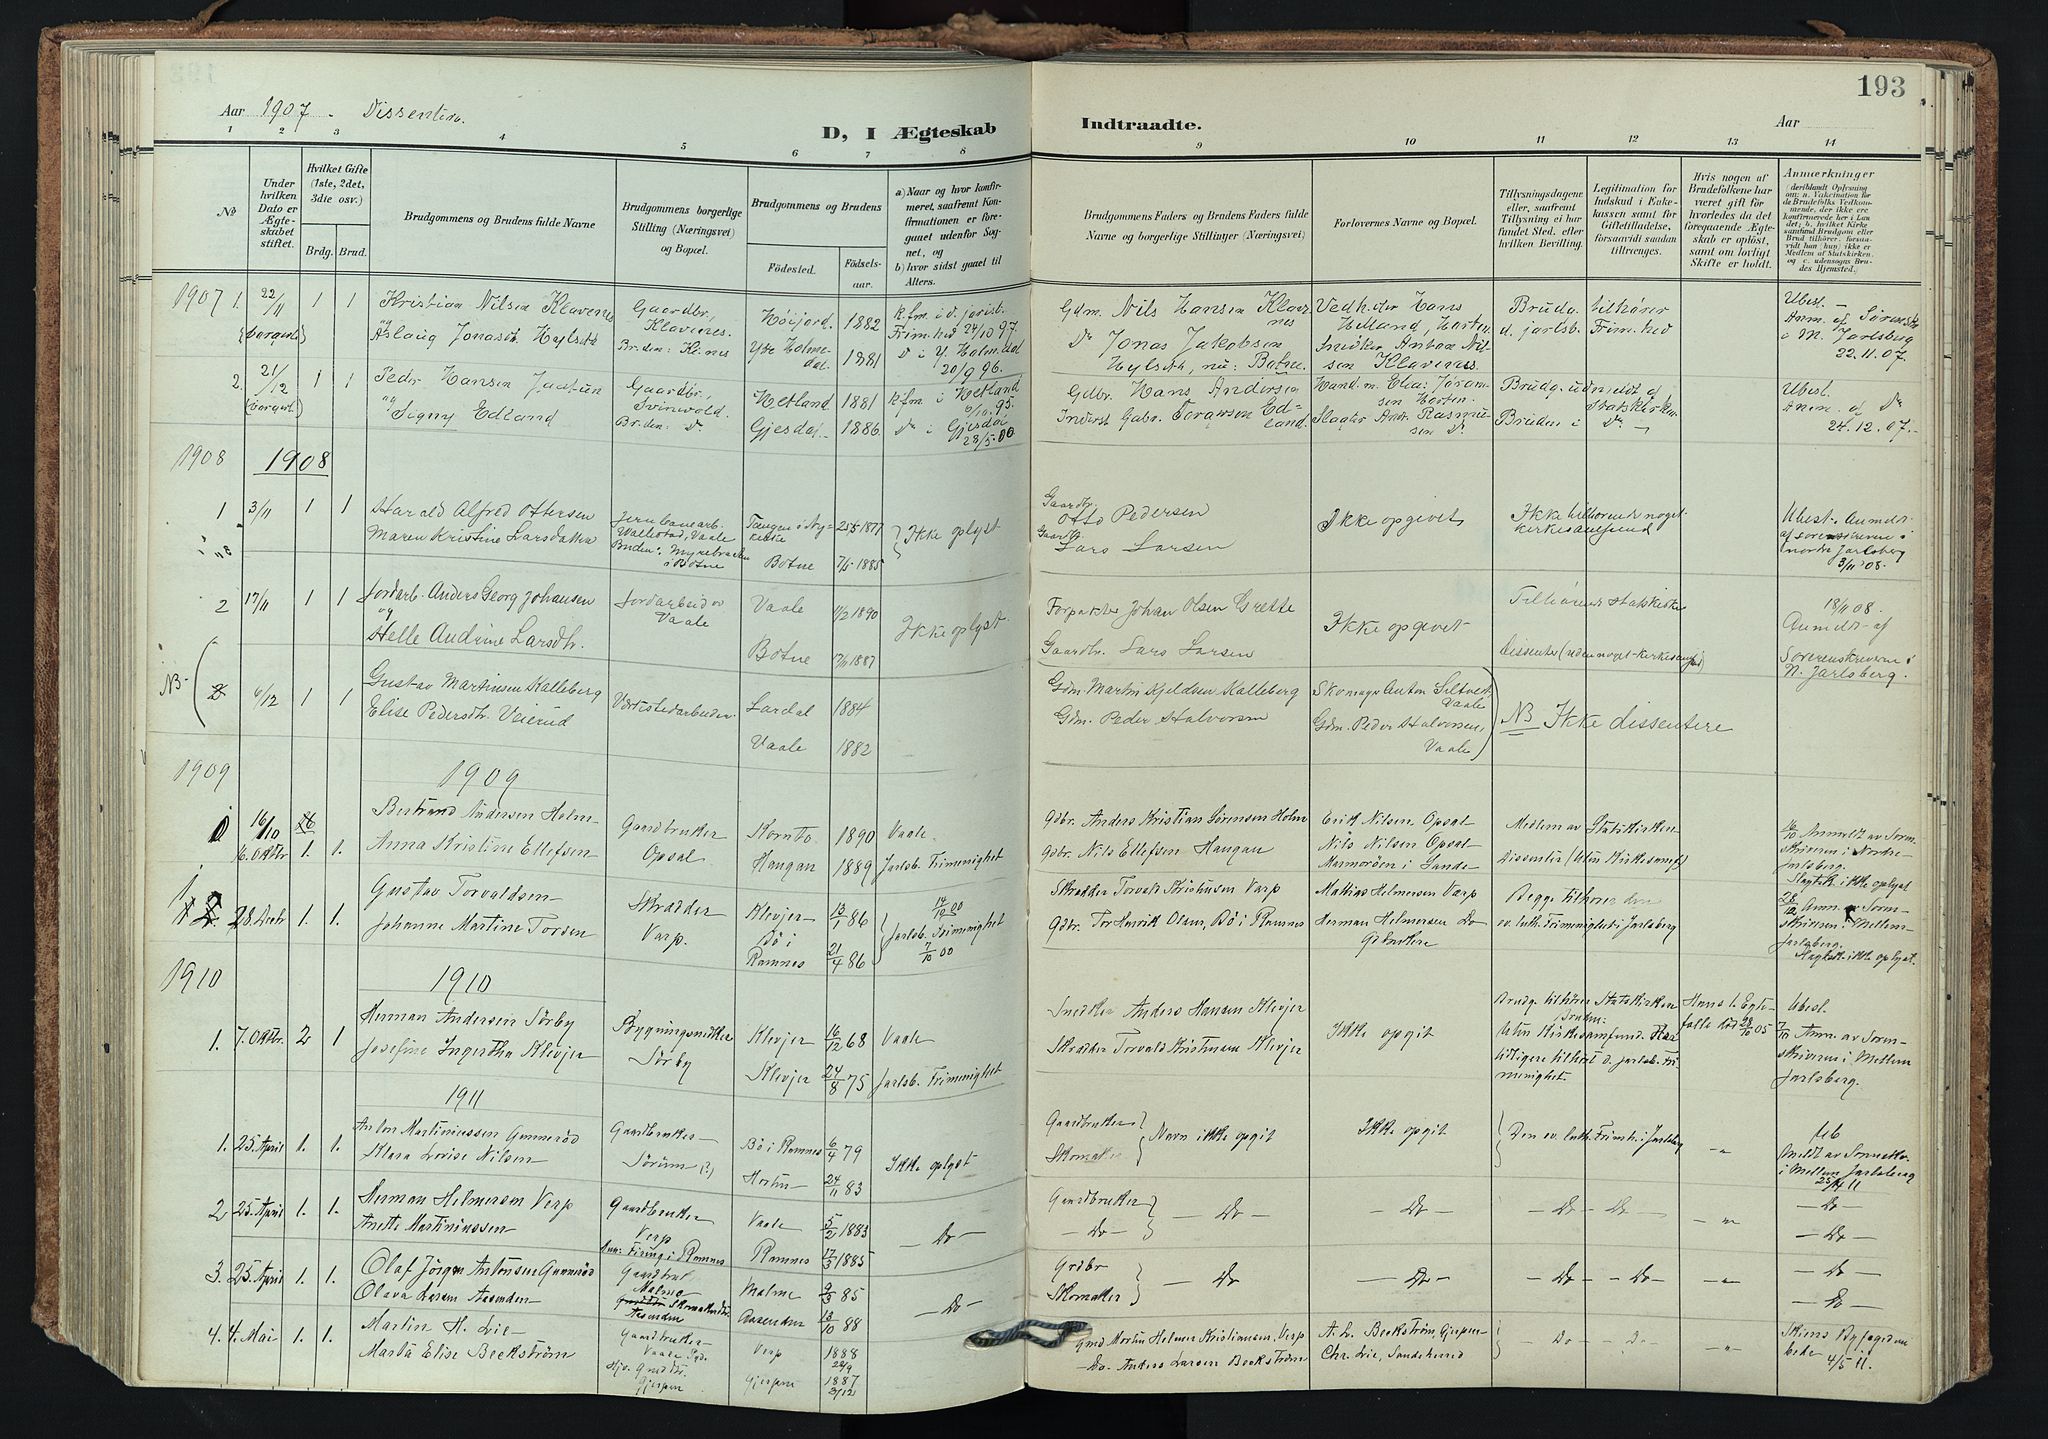 193
Aar 1907. Dissentere.
D, I Ægteskab Indtraadte.
Aar
1 2 3 4 5 6 7 8 9 10 11 12 13 14
No
Under hvilken Dato er Ægteskabet stiftet.
Hvilket Gifte (1ste, 2det, 3die osv.)
Brdg. Brud.
Brudgommens og Brudens fulde Navne
Brudgommens borgerlige Stilling (Næringsvei) og Bopæl.
Brudgommens og Brudens
Fødested. Fødselsaar.
a) Naar og hvor konfirmeret, saafremt Konfirmationen er foregaaet udenfor Sognet, og
b) hvor sidst gaaet til Alters.
Brudgommens Faders og Brudens Faders fulde Navne og borgerlige Stillinger (Næringsvei)
Forlovernes Navne og Bopæl.
Tillysningsdagene eller, saafremt Tillysning ei har fundet Sted, efter hvilken Bevilling.
Legitimation for Indskud i Enkekassen samt for Giftetilladelse, forsaavidt saadan tiltrænges.
Hvis nogen af Brudefolkene har været gift før hvorledes da det foregaaende Ægteskab er opløst, samt om lovligt Skifte er holdt.
Anmerkninger
1907 1. 22/11 1 1 Kristian Nilsen Klavenes Gaardbr., Klavenes. Høijord. 1882 kfm. i d. jarlsb. Frim. hed 24/10 97. Gdm. Nils Hansen Klavenes Vedhctor Hans Helland, Horten Brudg. tilhører d. jarlsb. Frim. hed Ubest. – Anm. af Sorenskr. i M. Jarlsberg 22.11.07.
(borgerl.) og Aslaug Jonasdt. Hylseth Bruden: Ytre Holmedal. 1881 Do i Y. Holmedal 20/9 96. Do Jonas Jakobsen Hylseth, nu: Botne. Snedker Anton Nilsen Klavenes
2. 21/12 1 1 Peder Hansen Jaatun Gaardbr., Hetland 1881 kfm. i Hetland 95. Gdbr. Hans Andersen Brudg. udmeldt af Statskirken Ubest. Anm. af Do 24.12.07.
(borgerl.) og Signy Edland Bruden: Do Gjesdal 1886 Do i Gjesdal 28/5.00 Inderst Gabr. Edland. Slagter Andr. Rasmussen Do. Bruden i Do
1908 1908
1 3/11 1 1 Harald Alfred Ottersen Jernbanearb. Vallestad, Vaale Tangen i Nykirke 25/5 1877 Ikke oplyst Gaardbr. Otto Pedersen Ikke opgivet Ikke tilhørende noget kirkesamfund Ubest. Anmeldt af sorenskriveren i nordre Jarlsberg 3/11 08.
Maren Kristine Larsdatter Bruden: i Botne Botne 7/5 1885 Gaardbr. Lars Larsen
2 17/11 1 1 Jordarb. Anders Georg Johansen Jordarbeider Vaale Vaale 11/2 1890 Ikke oplyst. Forpagter Johan Olsen Grette Ikke opgivet Tilhørende Statskirken 18/11 08. Anmeldt af Sorenskriveren i N. Jarlsberg.
og Helle Andrine Larsdtr. Botne 1887 Gaardbr. Lars Larsen Dissenter (uden noget kirkesamfund)
NB- 2 6/12 1 1 Gustav Martinsen Kalleberg Værkstedarbeider Lardal 1884 Gdm. Martin Kjeldsen Kalleberg Skomager Anton Siltvedt Vaale NB Ikke dissentere
Elise Pedersdtr. Veierud Vaale 1882 Gdm. Peder Halvorsen Gdm. Peder Halvorsen, Vaale
1909 1909
16/10 Bertrand Andersen Holm Gaardbruker Opsal 1890 Vaale. Gdbr. Anders Kristian Sørensen Holm Erik Nilsen Opsal Medlem av Statskirken 16/10 Anmeldt av Sorenskriveren i Nordre Jarlsberg. Slegtsk. ikke oplyst
16. Oktbr 1. 1. Anna Kristine Ellefsen Haugan 1889 Jarlsb. Frimenighet Gdbr. Nils Ellefsen Haugan Nils Nilsen Opsal Dissenter (Uten Kirkesamf.)
28. Decbr 1. 1. Gustav Torvaldsen Skrædder Varp. Klevjer 13/1 86 14/10 00 Skrædder Torvald Kristiansen Varp Mathias Helmersen Varp Begge tilhører den ev. luth. Frimenighet i Jarlsberg 28/12 Anm. av Sorenskriveren i Mellem-Jarlsberg. Slegtsk. ikke oplyst.
Johanne Martine Torsen Bö i Ramnes 21/4 86 Jarlsb. Frimenighet 7/10 00 Gdbr. Tor Henrik Olsen, Bö i Ramnes Herman Helmersen Do Gdbrukere
1910 1910
1. 7. Oktbr. 2 1 Herman Andersen Sörby Bygningssnekker Sörby Klevjer 16/12 68 Vaale Snedker Anders Hansen Klevjer Ikke opgit Brudg. tilhører Statskirken Hans 1. Egtefælle död 28/10 05 Ubesl. 7/10 Anm. av Sorenskriveren i Mellem Jarlsberg.
Josefine Ingertha Klevjer Klevjer 24/8 75 Jarlsb. Frimenighet Skrædder Torvald Kristiansen Klevjer Bruden: Uten Kirkesamfund. Har tidligere tilhört d. jarlsb. Frimenighet.
1911
1. 25. April 1. 1. Anton Martiniussen Gunneröd Gaardbruker Sörum (?) Bö i Ramnes 6/4 79 Ikke oplyst Gaardbruker Navn ikke opgit Ikke opgit Den ev. luth. Frim. i Jarlsberg -"- Meldt av Sorenskr. i Mellem Jarlsberg 25/4 11
Klara Lovise Nilsen Horten 24/11 83 Skomaker
2 25. April 1. 1. Herman Helmersen Verp Gaardbruker Verp Vaale 5/2 1883 – Do – Gaardbruker – Do – – Do – – Do – – Do – -"- – Do –
Anette Martiniussen Ramnes 17/3 1885 – Do – – Do –
3. 25. April 1. 1. Olaf Jörgen Antonsen Gunneröd Gaardbruk. Malme Malme 9/3 85 – Do – Grdbr – Do – – Do – – Do – – Do – -"- – Do –
Olava Larsen Aasenden Skomakerdtr. Aasenden Aasenden 13/10 88 Skomaker – Do –
4. 4. Mai 1. 1. Martin H. Lie Gaardbruker Vaale Verp 1888 Grd Martin Helmer Kristiansen, Verp A. L. Beckström, Gjerpen – Do – – Do – -"- Skiens Byfogedembede 4/5 11.
Marta Elise Beckström Gjerpen Gjerpen 1887 Do. Anders Larsen Beckström Chr. Lie, Sandeherred